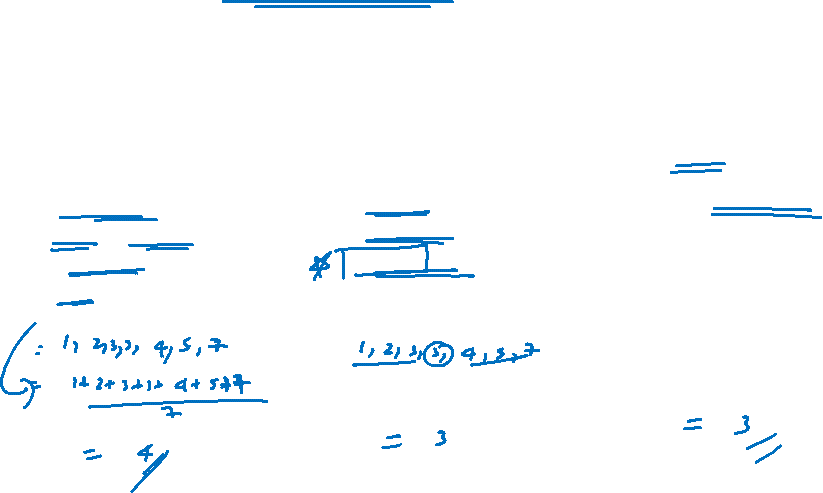 = 1, 2,3,3, 4,5,7
= 1+2+3+3+4+5+7
7
= 4
1,2,3,3,4,5,7
= 3
= 3